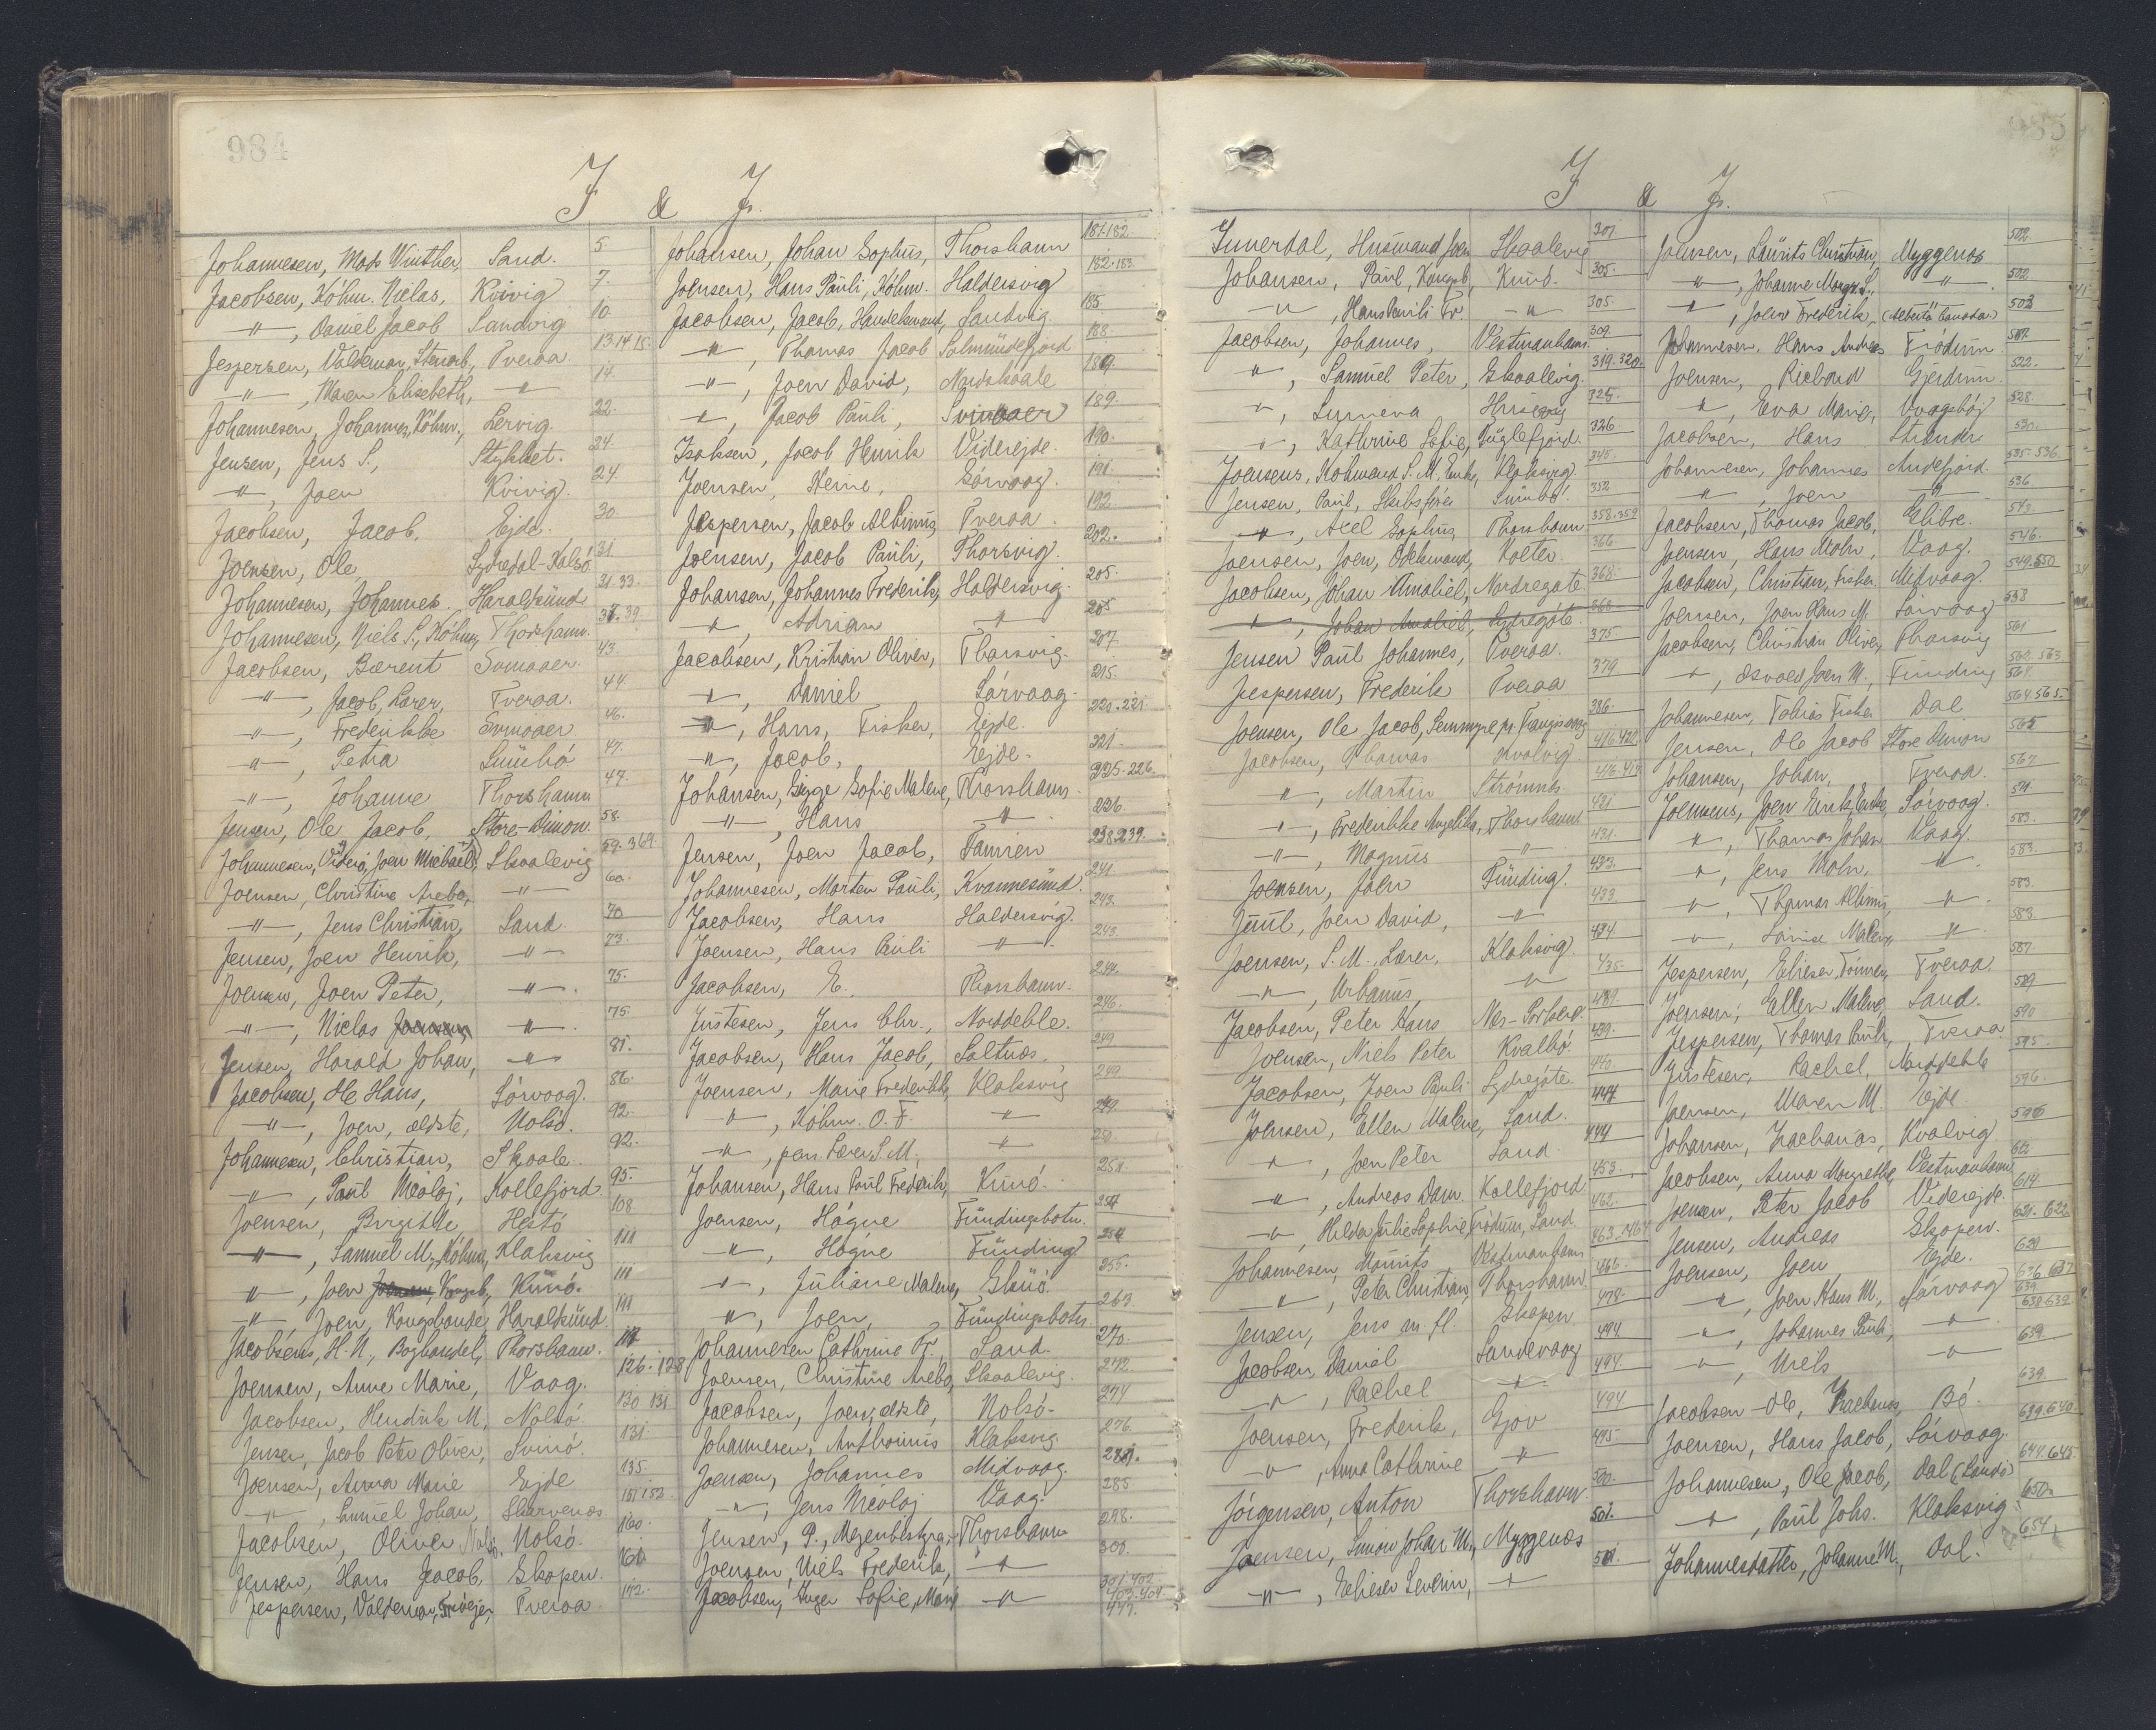 984
I & J.
Johannesen, Mads Winther, Sand. 5.
Jacobsen, Köbm. Niclas, Kvivig 7.
-"-, Daniel Jacob Sandvig 10.
Jespersen, Valdemar, Tveraa 13.14.15.
-"-, Maren Elisebeth, -"- 14.
Johannesen, Johannes, Köbm., Lervig. 22.
Jensen, Jens S., Stykket. 24.
-"-, Joen Kvivig. 24
Jacobsen, Jacob, Ejde. 30.
Joensen, Ole, Sydredal-Kalsö 31
Johannesen, Johannes. Haraldsünd 31.33.
Johannesen, Niels S., Köbm, Thorshavn. 38.39.
Jacobsen, Bærent Svinaaer. 43.
-"-, Jacob, Lærer, Tveraa. 44.
-"-, Frederikke Svinaaer 46.
-"-, Petra Sümbö 47.
-"-, Johanne Thorshavn 47.
Jensen, Ole Jacob, Store-Dimon. 58.
Johannesen, Videvig, Joen Michael, Skaalevig 59.369.
Joensen, Christine Arebo, -"- 60.
-"-, Jens Christian, Sand. 70
Jensen, Joen Henrik, -"- 73.
Joensen, Joen Peter, -"-. 75.
-"-, Niclas Joensen, -"-. 75.
Jensen, Harald Johan, -"- 81.
Jacobsen, Ole Hans, Sörvaag. 86.
-"-, Joen, ældste, Nolsö. 92.
Johannesen, Christian, Skaale. 92.
-"-, Paul Nicolaj, Kollefjord. 95.
Joensen, Birgitte, Hestö 108
-"-, Samuel M., Köbm, Klaksvig 111
-"-, Joen Joensen, Kongsb, Kunö. 111
-"-, Joen, Kongsbonde, Haraldsünd. 111
Jacobsens, H.N., Boghandel, Thorshavn. 117
Joensen, Anne Marie, Vaag. 126.128
Jacobsen, Hendrik M., Nolsö. 130 131
Jensen, Jacob Peter Oliver, Svinö. 131.
Joensen, Anna Marie Ejde 135.
-"-, Samuel Johan, Skarvenæs 151 152
Jacobsen, Oliver Nolsö. 160.
Jensen, Hans Jacob, Skopen. 161
Jespersen, Valdemar, Tveraa. 172.
Johansen, Johan Sophus, Thorshavn 181.182.
Joensen, Hans Pauli, Köbm. Haldersvig 182.183
Jacobsen, Jacob, Handelsmand, Sandvig. 185
-"-, Thomas Jacob Salmündefjord 188.
-"-, Joen David, Nordskaale 189.
-"-, Jacob Pauli, Svinaaer 189.
Isaksen, Jacob Henrik Viderejde. 190.
Joensen, Kerne, Sörvaag. 191.
Jespersen, Jacob Albinus, Tveraa. 192
Joensen, Jacob Pauli, Thorsvig. 202.
Johansen, Johannes Frederik, Haldersvig. 205.
-"-, Adrian -"- 205
Jacobsen, Kristian Oliver, Thorsvig. 207.
-"-, Daniel Sörvaag. 215.
-"-, Hans, Fisker, Ejde. 220.221.
-"-, Jacob, Ejde. 221.
Johansen, Sigge Sofie Malene, Thorshavn. 225.226.
-"-, Hans -"-. 226
Jensen, Joen Jacob, Famien 238.239.
Johannesen, Morten Pauli, Kvannesünd. 241
Jacobsen, Hans Haldersvig. 243.
Joensen, Hans Pauli -"-. 243
Jacobsen, E., Thorshavn. 244.
Justesen, Jens Chr., Norddeble. 246.
Jacobsen, Hans Jacob, Saltnæs. 249
Joensen, Marie Frederikke, Klaksvig 249.
-"-, Köbm. O.F. -"- 249
-"-, pens. Lærer S.M., -"- 250
Johansen, Hans Paul Frederik, Kunö. 251.
Joensen, Högne Fündingsbotn. 254
-"-, Högne Fünding 254
-"-, Juliane Malene, Glüö. 255.
-"-, Joen, Fündingsbotn 263
Johannesen Cathrine Fr., Sand. 270.
Joensen, Christine Arebo, Skaalevig. 272.
Jacobsen, Joen, ældste, Nolsö. 274
Johannesen, Anthonius Klaksvig 276.
Joensen, Johannes Midvaag. 281.
-"-, Jens Nicolaj Vaag. 285
Jensen, P., Thorshavn 298.
Joensen, Niels Frederik, -"- 300.
Jacobsen, Inger Sofie, Marie -"- 301.402. 403.404. 447.
985
I & J.
Innerdal, Husmand Joen Skaalevig 301.
Johansen, Paul, Kongsb, Kunö. 305.
-"-, Hans Pauli Fr. -"- 305.
Jacobsen, Johannes, Vestmanhavn. 309.
-"-, Samuel Peter, Skaalevig. 319.320.
-"-, Sunneva Husevig 325.
-"-, Kathrine Sofie, Fuglefjord. 326
Joensens, Köbmand S.M. Enke, Klaksvig. 345.
Jensen, Paul, Skibsförer Sumbö. 352
-"-, Axel Sophus, Thorshavn 358.359
Joensen, Joen, Odelsmand, Kolter. 366
Jacobsen, Johan Amaliel, Nordregöte 368.
-"-, Johan Amaliel, Sydregöte. 368
Jensen Paul Johannes, Tveraa. 375
Jespersen, Frederik Tveraa 379
Joensen, Ole Jacob, 386.
Jacobsen, Thomas Kvalvig. 416.420
-"-, Martin Strömnæs 416.417
-"-, Frederikke Angelika, Thorshavn. 421
-"-, Magnus -"- 431.
Joensen, Joen Fünding. 433.
Juul, Joen David, -"- 433
Joensen, S.M., Lærer, Klaksvig. 434
-"-, Urbanus, -"- 435.
Jacobsen, Peter Hans 439.
Joensen, Niels Peter Kvalbö. 439.
Jacobsen, Joen Pauli Sydregöte. 440.
Joensen, Ellen Malene, Sand. 444
-"-, Joen Peter Sand. 444
-"-, Andreas Dam Kollefjord 453.
-"-, Hilda Julie Sophie, Trödum, Sand. 462.
Johannesen, Mourits Vestmanhavn 463.464
-"-, Peter Christian, Thorshavn. 466.
Jensen, Jens m.fl. Skopen 478.
Jacobsen, Daniel Sandevaag 494
-"-, Rachel -"- 494.
Joensen, Frederik, Gjov 494
-"-, Anna Cathrine -"- 495
Jörgensen, Anton Thorshavn. 500.
Joensen, Simon Johan M., Myggenæs 501.
-"-, Elieser Severin, -"- 501.
Joensen, Laurits Christian, Myggenæs 502.
-"-, Johanne Margr. S., -"- 502
-"-, Joen Frederik, (Alberta Canada) 502
Johannesen. Hans Andreas Trödum 507.
Joensen, Richard Gjerdum. 522.
-"-, Eva Marie, Vaagsböj 528.
Jacobsen, Hans Strænder 530.
Johannesen, Johannes Andefjord. 535-536.
-"-, Joen -"- 536
Jacobsen, Thomas Jacob, Glibre. 543
Joensen, Hans Mohr, Vaag. 546.
Jacobsen, Christian, Fisker Midvaag. 549.550
Joensen, Joen Hans M. Sörvaag 553
Jacobsen, Christian Oliver, Thorsvig 561
-"-, Osvald Joen M., Funding 562.563
Johannesen, Tobias Fisker Dal 564.565.
Jensen, Ole Jacob Store Dimon 565
Johansen, Johan, Tveraa. 567
Joensens, Joen Enok, Enke, Sörvaag. 571
-"-, Thomas Johan Vaag. 583.
-"-, Jens Mohr, -"-. 583.
-"-, Thomas Albinus, -"-. 583.
-"-, Louise Malene, -"- 583
Jespersen, Elieser, Tveraa. 587.
Joensen, Ellen Malene, Sand. 589
Jespersen, Thomas Pauli, Tveraa 590
Justesen, Rachel, Norddeble 595.
Joensen, Maren M. Ejde 596.
Johansen, Zacharias, Kvalvig 596
Jacobsen, Anna Margrethe, Vestmanhavn 612
Joensen, Peter Jacob Viderejde. 614.
Jensen, Andreas Skopen. 621.622
Joensen, Joen Ejde. 629
-"-, Joen Hans M., Sörvaag 636.637
-"-, Johannes Pauli, -"- 638.639.
-"-, Niels -"- 639
Jacobsen Ole, Zacharias, Bö. 639.
Joensen, Hans Jacob, Sörvaag. 639.640
Johannesen, Ole Jacob, Dal (Sandö) 644.645.
-"-, Paul Johs. Klaksvig. 650.
Johannesdatter, Johanne M., Dal. 654.